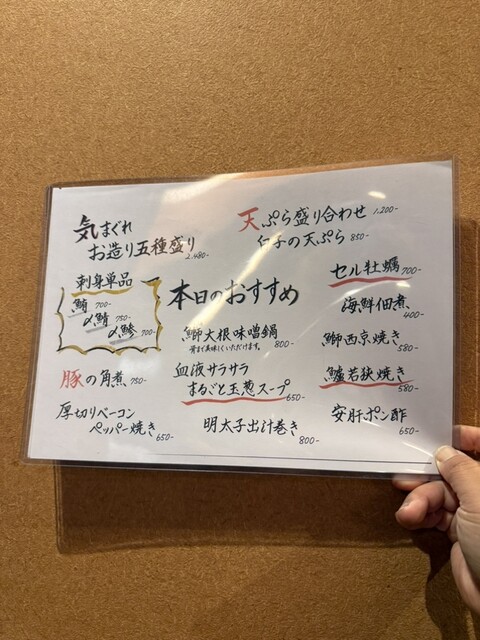 気まぐれ
お造り五種盛り 2.480-
天ぷら盛り合わせ 1.200-
仁子の天ぷら 850-
刺身単品
鮪 700-
〆鯖 750-
〆鯵 700-
本日のおすすめ
セル牡蠣 700-
海鮮佃煮 400-
鰤大根味噌鍋 800-
骨まで美味しくいただけます。
鰤西京焼き 580-
豚の角煮 750-
血液サラサラ
まるごと玉葱スープ 650-
鱸若狭焼き 580-
厚切りベーコン
ペッパー焼き 650-
明太子出汁巻き 800-
安肝ポン酢 650-